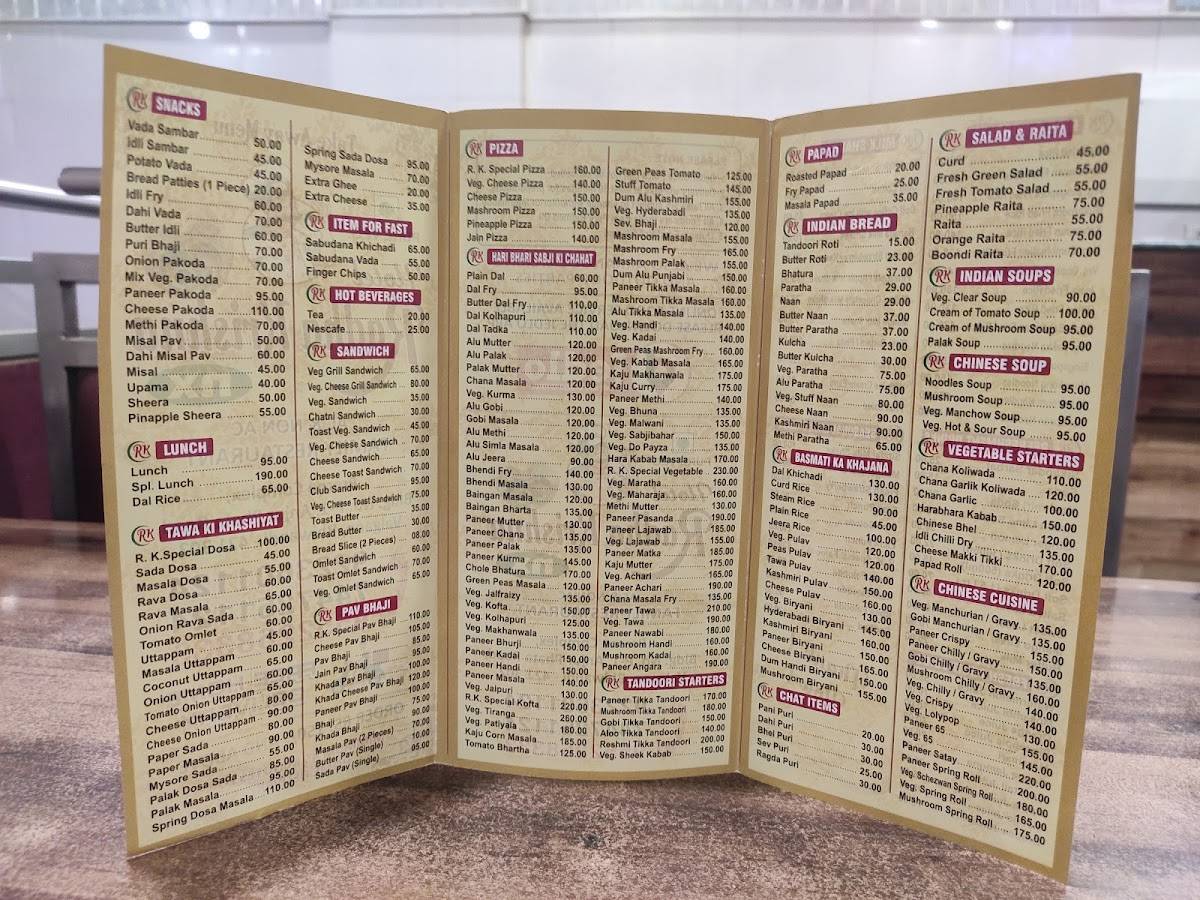 RK SNACKS
Vada Sambar 50.00
Idli Sambar 45.00
Potato Vada 45.00
Bread Patties (1 Piece) 20.00
Idli Fry 60.00
Dahi Vada 70.00
Butter Idli 60.00
Puri Bhaji 70.00
Onion Pakoda 70.00
Mix Veg. Pakoda 70.00
Paneer Pakoda 95.00
Cheese Pakoda 110.00
Methi Pakoda 70.00
Misal Pav 50.00
Dahi Misal Pav 60.00
Misal 45.00
Upama 40.00
Sheera 50.00
Pinapple Sheera 55.00
RK LUNCH
Lunch 95.00
Spl. Lunch 190.00
Dal Rice 65.00
RK TAWA KI KHASHIYAT
R. K.Special Dosa 100.00
Sada Dosa 45.00
Masala Dosa 55.00
Rava Dosa 65.00
Rava Masala 65.00
Onion Rava Sada 60.00
Tomato Omlet 60.00
Uttappam 45.00
Masala Uttappam 60.00
Coconut Uttappam 60.00
Onion Uttappam 65.00
Tomato Onion Uttappam 65.00
Cheese Uttappam 80.00
Cheese Onion Uttappam 90.00
Paper Sada 80.00
Paper Masala 90.00
Mysore Sada 55.00
Palak Dosa Sada 85.00
Palak Masala 95.00
Spring Dosa Masala 110.00
Spring Sada Dosa 95.00
Mysore Masala 70.00
Extra Ghee 20.00
Extra Cheese 35.00
RK ITEM FOR FAST
Sabudana Khichadi 65.00
Sabudana Vada 55.00
Finger Chips 50.00
RK HOT BEVERAGES
Tea 20.00
Nescafe 25.00
RK SANDWICH
Veg Grill Sandwich 65.00
Veg. Cheese Grill Sandwich 80.00
Veg. Sandwich 35.00
Chatni Sandwich 30.00
Toast Veg. Sandwich 45.00
Veg. Cheese Sandwich 70.00
Cheese Sandwich 65.00
Cheese Toast Sandwich 70.00
Club Sandwich 95.00
Veg. Cheese Toast Sandwich 75.00
Toast Butter 35.00
Bread Butter 30.00
Bread Slice (2 Pieces) 08.00
Omlet Sandwich 60.00
Toast Omlet Sandwich 70.00
Veg. Omlet Sandwich 65.00
RK PAV BHAJI
R.K. Special Pav Bhaji 110.00
Cheese Pav Bhaji 105.00
Pav Bhaji 85.00
Jain Pav Bhaji 95.00
Khada Pav Bhaji 100.00
Khada Cheese Pav Bhaji 120.00
Paneer Pav Bhaji 100.00
Bhaji 75.00
Masala Pav (2 Pieces)
Butter Pav (Single)
Sada Pav (Single) 05.00
RK PIZZA
R. K. Special Pizza 160.00
Veg. Cheese Pizza 140.00
Cheese Pizza 150.00
Mashroom Pizza 150.00
Pineapple Pizza 150.00
Jain Pizza 140.00
RK HARI BHARI SABJI KI CHAHAT
Plain Dal 60.00
Dal Fry 95.00
Butter Dal Fry 110.00
Dal Kolhapuri 110.00
Dal Tadka 110.00
Alu Mutter 120.00
Alu Palak 120.00
Palak Mutter 120.00
Chana Masala 120.00
Veg. Kurma 130.00
Alu Gobi 120.00
Gobi Masala 120.00
Alu Methi 120.00
Alu Simla Masala 120.00
Alu Jeera 90.00
Bhendi Fry 140.00
Bhendi Masala 130.00
Baingan Masala 120.00
Baingan Bharta 135.00
Paneer Mutter 130.00
Paneer Chana 135.00
Paneer Palak 135.00
Paneer Kurma 145.00
Chole Bhatura 170.00
Green Peas Masala 120.00
Veg. Jalfraizy 135.00
Veg. Kofta 150.00
Veg. Kolhapuri 125.00
Veg. Makhanwala 135.00
Paneer Bhurji 150.00
Paneer Kadai 150.00
Paneer Handi 150.00
Paneer Masala 140.00
Veg. Jaipuri 130.00
R.K. Special Kofta 220.00
Veg. Tiranga 260.00
Veg. Patiyala 180.00
Kaju Corn Masala 185.00
Tomato Bhartha 125.00
Green Peas Tomato 125.00
Stuff Tomato 145.00
Dum Alu Kashmiri 155.00
Veg. Hyderabadi 135.00
Sev. Bhaji 120.00
Mashroom Masala 155.00
Mashroom Fry 165.00
Mashroom Palak 155.00
Dum Alu Punjabi 150.00
Paneer Tikka Masala 160.00
Mashroom Tikka Masala 160.00
Alu Tikka Masala 135.00
Veg. Handi 140.00
Veg. Kadai 140.00
Green Peas Mashroom Fry 160.00
Veg. Kabab Masala 165.00
Kaju Makhanwala 175.00
Kaju Curry 175.00
Paneer Methi 140.00
Veg. Bhuna 135.00
Veg. Malwani 135.00
Veg. Sabjibahar 150.00
Veg. Do Payza 135.00
Hara Kabab Masala 170.00
R. K. Special Vegetable 230.00
Veg. Maratha 160.00
Veg. Maharaja 160.00
Methi Mutter 130.00
Paneer Pasanda 190.00
Paneer Lajawab 185.00
Veg. Lajawab 155.00
Paneer Matka 185.00
Kaju Mutter 175.00
Veg. Achari 165.00
Paneer Achari 190.00
Chana Masala Fry 135.00
Paneer Tawa 210.00
Veg. Tawa 190.00
Paneer Nawabi 180.00
Mushroom Handi 160.00
Mushroom Kadai 160.00
Paneer Angara 190.00
RK TANDOORI STARTERS
Paneer Tikka Tandoori 170.00
Mushroom Tikka Tandoori 180.00
Gobi Tikka Tandoori 150.00
Aloo Tikka Tandoori 140.00
Reshmi Tikka Tandoori 200.00
Veg. Sheek Kabab 150.00
RK PAPAD
Roasted Papad 20.00
Fry Papad 25.00
Masala Papad 35.00
RK INDIAN BREAD
Tandoori Roti 15.00
Butter Roti 23.00
Bhatura 37.00
Paratha 29.00
Naan 29.00
Butter Naan 37.00
Butter Paratha 37.00
Kulcha 23.00
Butter Kulcha 30.00
Veg. Paratha 75.00
Alu Paratha 75.00
Veg. Stuff Naan 80.00
Cheese Naan 90.00
Kashmiri Naan 90.00
Methi Paratha 65.00
RK BASMATI KA KHAJANA
Dal Khichadi 130.00
Curd Rice 130.00
Steam Rice 90.00
Plain Rice 45.00
Jeera Rice 100.00
Veg. Pulav 120.00
Peas Pulav 120.00
Tawa Pulav 140.00
Kashmiri Pulav 150.00
Cheese Pulav 160.00
Veg. Biryani 130.00
Hyderabadi Biryani 145.00
Kashmiri Biryani 160.00
Paneer Biryani 150.00
Cheese Biryani 165.00
Dum Handi Biryani 150.00
Mushroom Biryani 155.00
RK CHAT ITEMS
Pani Puri 20.00
Dahi Puri 30.00
Bhel Puri 30.00
Sev Puri 25.00
Ragda Puri 30.00
RK SALAD & RAITA
Curd 45.00
Fresh Green Salad 55.00
Fresh Tomato Salad 55.00
Pineapple Raita 75.00
Raita 55.00
Orange Raita 75.00
Boondi Raita 70.00
RK INDIAN SOUPS
Veg. Clear Soup 90.00
Cream of Tomato Soup 100.00
Cream of Mushroom Soup 95.00
Palak Soup 95.00
RK CHINESE SOUP
Noodles Soup 95.00
Mushroom Soup 95.00
Veg. Manchow Soup 95.00
Veg. Hot & Sour Soup 95.00
RK VEGETABLE STARTERS
Chana Koliwada 110.00
Chana Garlik Koliwada 120.00
Chana Garlic 100.00
Harabhara Kabab 150.00
Chinese Bhel 120.00
Idli Chilli Dry 135.00
Cheese Makki Tikki 170.00
Papad Roll 120.00
RK CHINESE CUISINE
Veg. Manchurian / Gravy 135.00
Gobi Manchurian / Gravy 135.00
Paneer Crispy 155.00
Paneer Chilly / Gravy 150.00
Gobi Chilly / Gravy 140.00
Mushroom Chilly / Gravy 160.00
Veg. Chilly / Gravy 140.00
Veg. Crispy 140.00
Veg. Lolypop 130.00
Paneer 65 155.00
Veg. 65 145.00
Paneer Satay 220.00
Paneer Spring Roll 200.00
Veg. Schezwan Spring Roll 180.00
Veg. Spring Roll 165.00
Mushroom Spring Roll 175.00